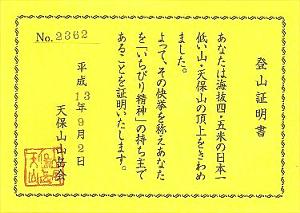 登山証明書
あなたは海抜四・五米の日本一
低い山・天保山の頂上をきわめ
ました。
よって、その快挙を称えあなた
を「いちびり精神」の持ち主で
あることを証明いたします。
平成13年9月2日
天保山山岳会
No. 2362